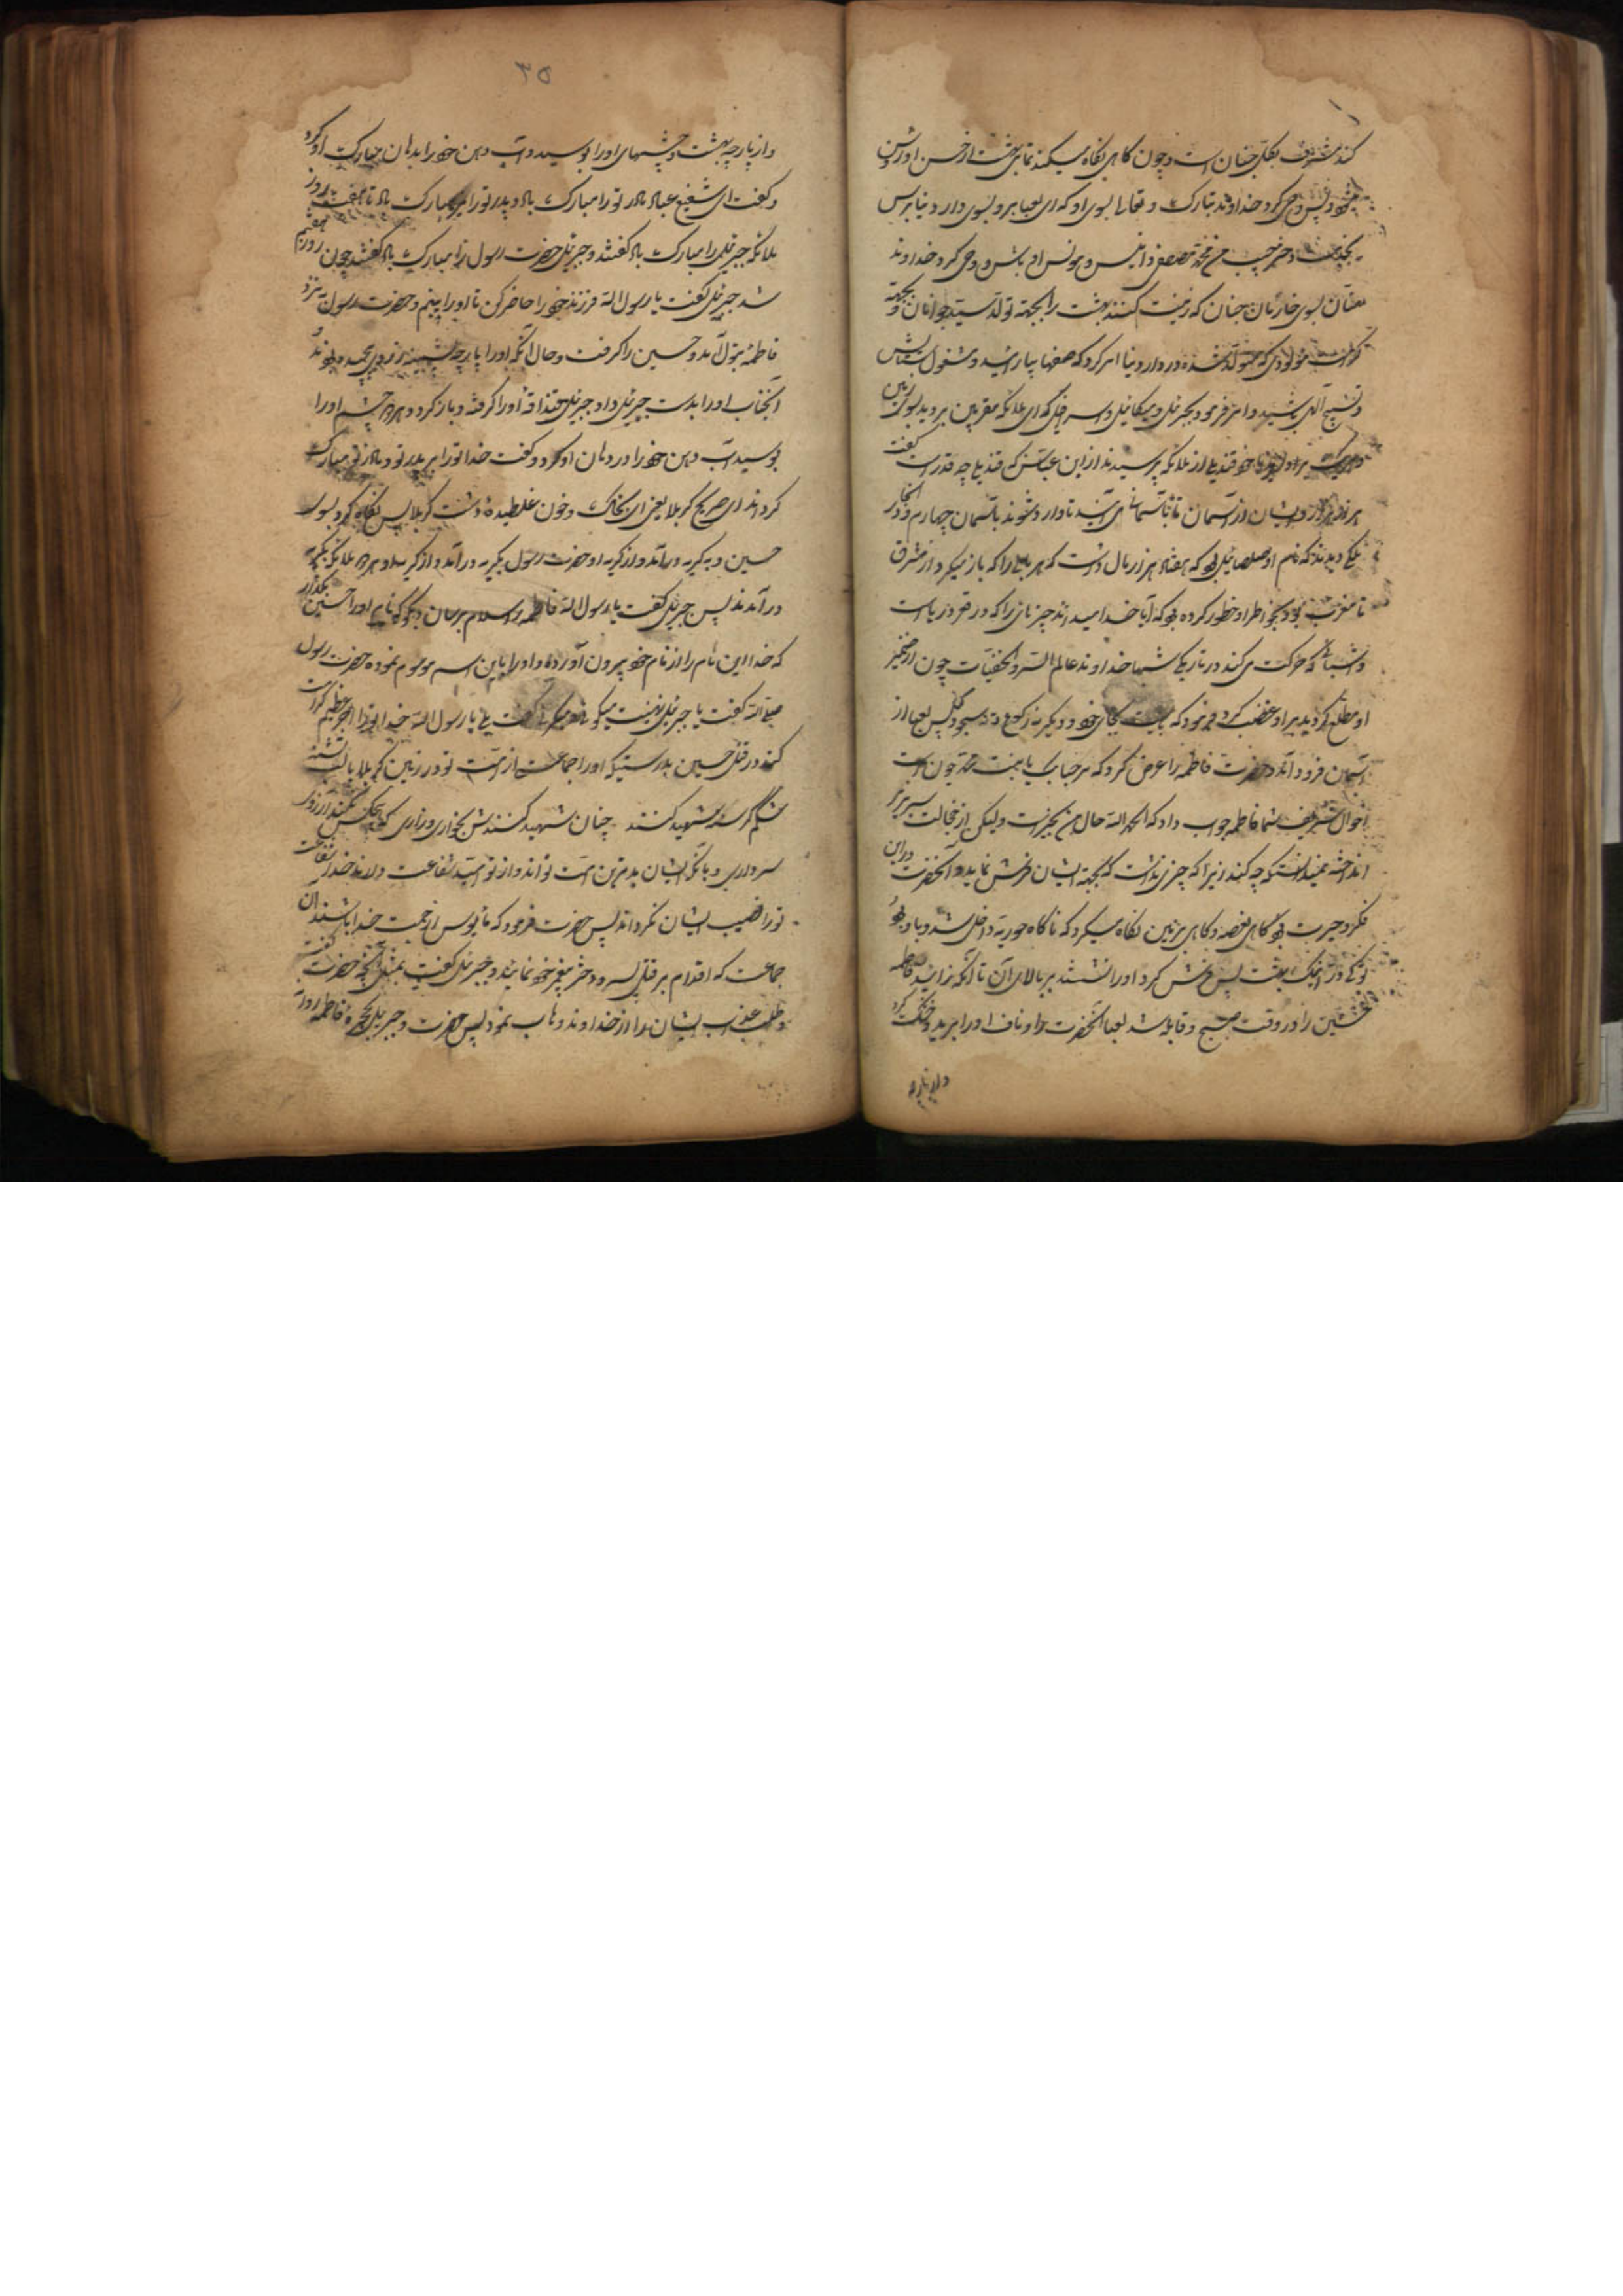 کند مشرف بکل جنان است و چون گاهی نگاه میکند تمامی بهشت از حسن او روشن
میشود پس وحی کرد خداوند تبارک و تعالی بسوی او که ای لعیا برو بسوی دار دنیا برس
بخدمت دختر حبیب من محمد مصطفی و انیس و مونس او باش و وحی کرد خداوند
منان بسوی خازنان جنان که زینت کنند بهشت را بجهة تولد سید جوانان و بجهة
کرامت مولودی که متولد شده در دار دنیا و امر کرد که صفها بیارائید و مشغول ستایش
و تسبیح الهی باشید و امر فرمود بجبرئیل و میکائیل و اسرافیل که ای ملائکه مقربین بروید بسوی زمین
قندیلی از ملائکه پرسیدند از ابن عباس که قندیل چه قدر است گفت
هر هزار در ایشان از آسمان تا بآسمان می آیند تا وارد شوند بآسمان چهارم و در آنجا
ملکی دیدند که نام او صلصائیل بود که هفتاد هزار بال داشت که هر بالی را که باز میکرد از مشرق
تا مغرب بود و بخواطر او خطور کرده بود که آیا خدا میداند چیزهائی را که در قعر دریا است
و اشیائی که حرکت می کند در تاریکی شبها خداوند عالم السر و الخفیات چون از ضمیر
او مطلع گردید بر او غضب کرد و فرمود که بایست بجای خود و دیگر نه رکوع و نه سجود مکن پس لعیا از
آسمان فرود آمد و حضرت فاطمه را عرض کرد که مرحبا بک یا بنت محمد چون است
احوال شریف شما فاطمه جواب داد که الحمد لله حال من بخیر است ولیکن از خجالت سر بزیر
انداخته نمیدانست که چه کند زیرا که چیزی نداشت که بجهة ایشان فرش نماید و آنحضرت در این
فکر و حیرت بود گاهی بغصه و گاهی بزمین نگاه میکرد که ناگاه حوریه داخل شد و با او بود
از بهشت پس فرش کرد او را نشستند بر بالای آن تا آنکه زائید فاطمه
حسین را در وقت صبح و قابله شد لعیا آنحضرت را و ناف او را برید و خشک کرد
و او را بپارچه
۳۵
و از پارچه بهشت و چشمهای او را بوسید و آب دهن خود را بدهان مبارک او کرد
و گفت ای شفیع عباد مادر تو را مبارک باد و پدر تو را مبارک باد تا هفت روز
ملائکه جبرئیل را مبارک باد گفتند و جبرئیل حضرت رسول را مبارک باد گفتند چون روز هفتم
شد جبرئیل گفت یا رسول الله فرزند خود را حاضر کن تا او را ببینم و حضرت رسول به نزد
فاطمه بتول آمد و حسین را گرفت و حال آنکه او را بپارچه پشمینه زردی پیچیده بودند
آنجناب او را بدست جبرئیل داد و جبرئیل قنداقه او را گرفته و باز کرد و هر دو چشم او را
بوسید آب دهن خود را در دهان او کرد و گفت خدا تو را بر پدر تو و مادر تو مبارک
گرداند ای صریع کربلا یعنی ای بخاک و خون غلطیده دشت کربلا پس نگاه کرد بسوی
حسین و به گریه درآمد و از گریه او حضرت رسول بگریه درآمد و از گریه او هر دو ملائکه بگریه
درآمدند پس جبرئیل گفت یا رسول الله فاطمه را سلام برسان و بگو که نام او را حسین بگذار
که خدا این نام را از نام خود بیرون آورده و او را باین اسم موسوم نموده حضرت رسول
صلی الله گفت یا جبرئیل تهنیت میگوئی و گریه میکنی گفت بلی یا رسول الله خدا تو را اجر عظیم کرامت
کند در قتل حسین بدرستیکه او را جماعت از امت تو در زمین کربلا با لب تشنه
شکم گرسنه شهید کنند چنان شهید کنندش بخواری و زاری که هیچکس نکند آرزوی
سرداری و بآنکه ایشان بدترین امت تواند و از تو امید شفاعت دارند خدا شفاعت
تو را نصیب ایشان نگرداند پس حضرت فرمود که مأیوس از رحمت خدا باشند آن
جماعت که اقدام بر قتل پسر دختر پیغمبر خود نمایند و جبرئیل گفت بمثل آنچه حضرت گفت
و طلب عذاب ایشان را از خداوند وهاب نمود پس حضرت و جبرئیل بحجره فاطمه روانه